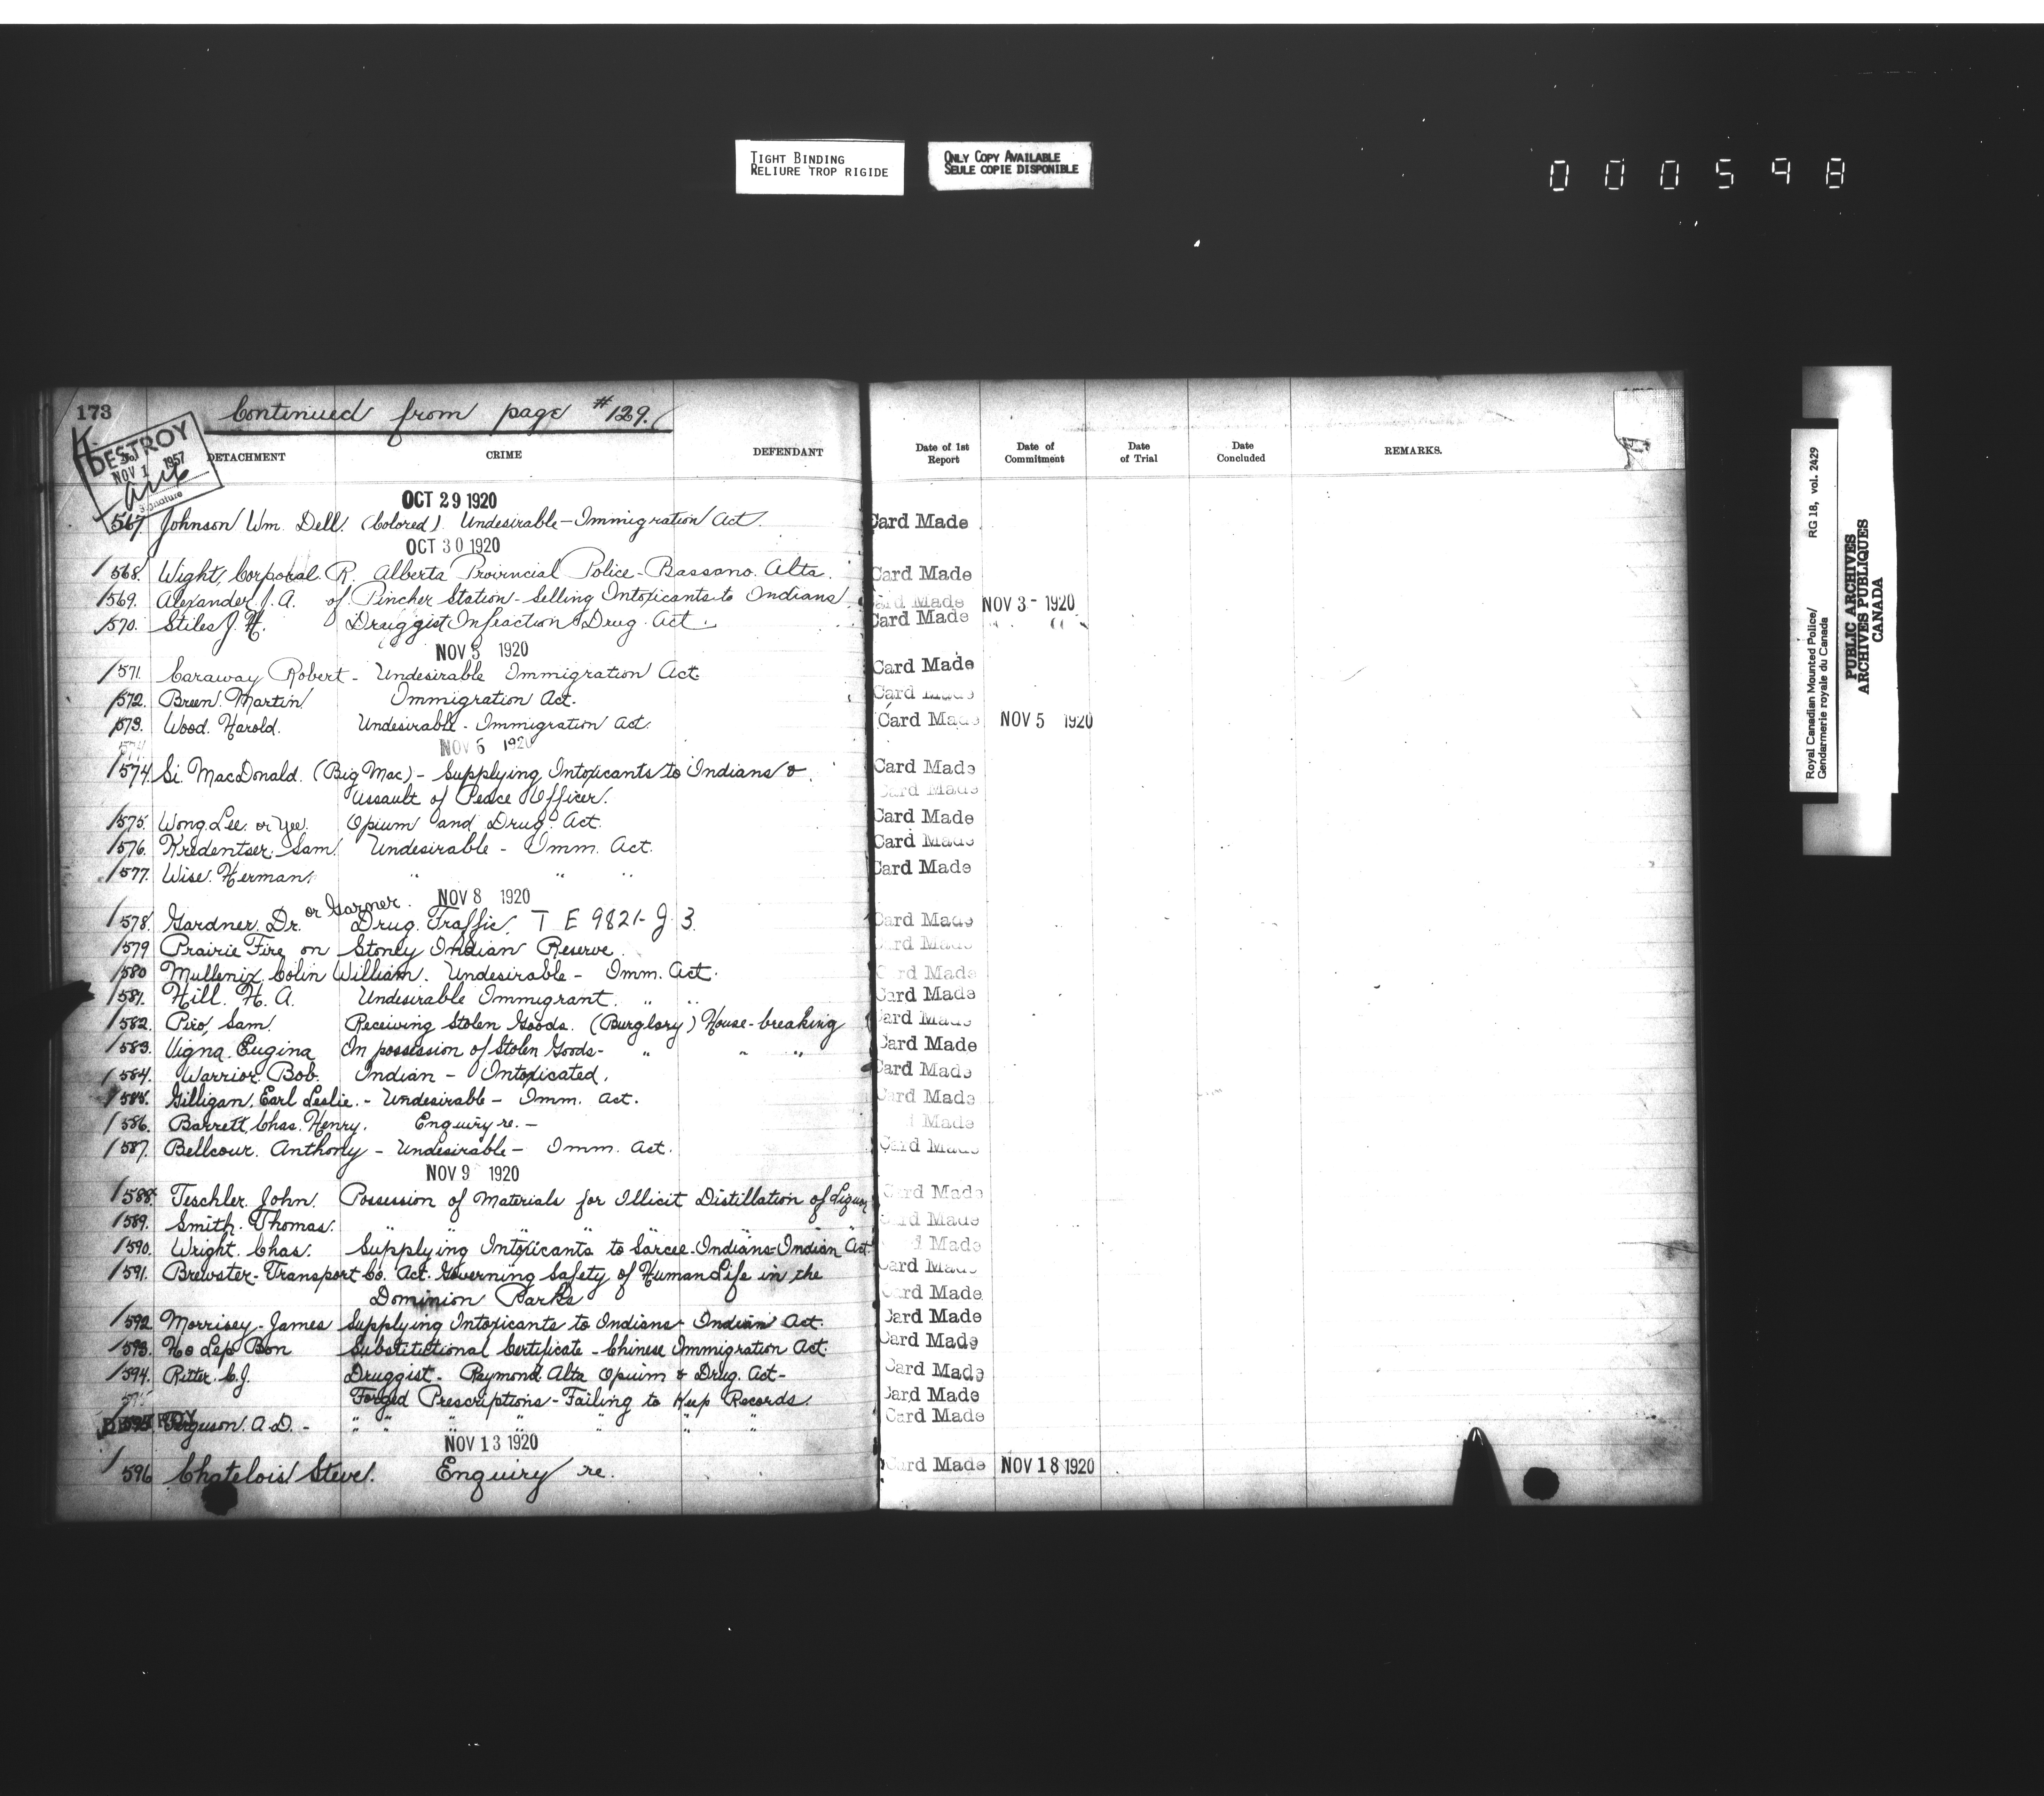 TIGHT BINDING
RELIURE TROP RIGIDE
ONLY COPY AVAILABLE
SEULE COPIE DISPONIBLE
000598
173 Continued from page #129.
DESTROY
NOV 1 1957
Signature
DETACHMENT CRIME DEFENDANT Date of 1st Report Date of Commitment Date of Trial Date Concluded REMARKS.
OCT 29 1920
567. Johnson Wm. Dell. (Colored). Undesirable - Immigration Act. Card Made
OCT 30 1920
568. Wight, Corporal. R. Alberta Provincial Police - Bassano. Alta. Card Made
569. Alexander J. A. of Pincher Station - Selling Intoxicants to Indians. Card Made NOV 3 - 1920
570. Stiles J. H. Druggist Infraction Drug. Act. Card Made " "
NOV 3 1920
571. Caraway Robert - Undesirable Immigration Act. Card Made
572. Breen. Martin Immigration Act. Card Made
573. Wood. Harold. Undesirable - Immigration Act. Card Made NOV 5 1920
574 NOV 5 1920
574. Si. MacDonald. (Big Mac) - Supplying Intoxicants to Indians & Card Made
Assault of Peace Officer. Card Made
575. Wong. Lee. or Yee. Opium and Drug. Act. Card Made
576. Kredentser. Sam. Undesirable - Imm. Act. Card Made
577. Wise. Herman. " " " Card Made
NOV 8 1920
578. Gardner. Dr. or Garner. Drug. Traffic. T E 9821- J 3. Card Made
579 Prairie Fire on Stoney Indian Reserve. Card Made
580 Mullenix, Colin William. Undesirable - Imm. Act. Card Made
581. Hill. H. A. Undesirable Immigrant. " " Card Made
582. Piro, Sam. Receiving Stolen Goods. (Burglary) House-breaking Card Made
583. Vigna. Eugina In possession of Stolen Goods - " " " Card Made
584. Warrior. Bob. Indian - Intoxicated. Card Made
585. Gilligan, Earl Leslie. - Undesirable - Imm. Act. Card Made
586. Barrett, Chas. Henry. Enquiry re. - Card Made
587. Bellcour. Anthony - Undesirable - Imm. Act. Card Made
NOV 9 1920
588. Teschler. John. Possession of Materials for Illicit Distillation of Liquor Card Made
589. Smith. Thomas. " " " " " " Card Made
590. Wright. Chas. Supplying Intoxicants to Sarcee-Indians-Indian Act. Card Made
591. Brewster - Transport Co. Act. Governing Safety of Human Life in the Card Made
Dominion Parks Card Made
592. Morrisey - James Supplying Intoxicants to Indians - Indian Act. Card Made
593. Ho Lep Bon Substitutional Certificate - Chinese Immigration Act. Card Made
594. Ritter. C. J. Druggist - Raymond. Alta Opuim & Drug. Act - Card Made
595 Forged Prescriptions - Failing to Keep Records. Card Made
DESTROY 595 Ferguson. A. D. - " " " " " " " Card Made
NOV 13 1920
596 Chatelois Steve. Enquiry re. Card Made NOV 18 1920
Royal Canadian Mounted Police/ RG 18, vol. 2429
Gendarmerie royale du Canada
PUBLIC ARCHIVES
ARCHIVES PUBLIQUES
CANADA